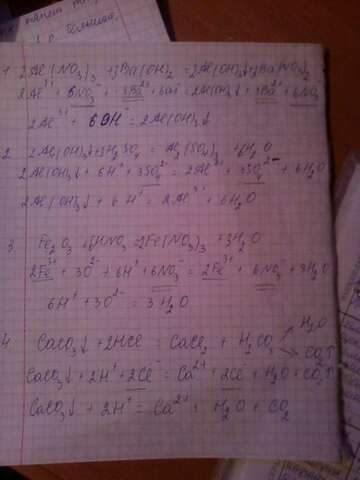 1. 2Al(NO₃)₃ + 3Ba(OH)₂ = 2Al(OH)₃↓ + 3Ba(NO₃)₂
2Al³⁺ + 6NO₃⁻ + 3Ba²⁺ + 6OH⁻ = 2Al(OH)₃↓ + 3Ba²⁺ + 6NO₃⁻
2Al³⁺ + 6OH⁻ = 2Al(OH)₃↓
2 2Al(OH)₃↓ + 3H₂SO₄ = Al₂(SO₄)₃ + 6H₂O
2Al(OH)₃↓ + 6H⁺ + 3SO₄²⁻ = 2Al³⁺ + 3SO₄²⁻ + 6H₂O
2Al(OH)₃↓ + 6H⁺ = 2Al³⁺ + 6H₂O
3 Fe₂O₃ + 6HNO₃ = 2Fe(NO₃)₃ + 3H₂O
2Fe³⁺ + 3O²⁻ + 6H⁺ + 6NO₃⁻ = 2Fe³⁺ + 6NO₃⁻ + 3H₂O
6H⁺ + 3O²⁻ = 3H₂O
4 CaCO₃↓ + 2HCl = CaCl₂ + H₂CO₃ H₂O CO₂↑
CaCO₃↓ + 2H⁺ + 2Cl⁻ = Ca²⁺ + 2Cl⁻ + H₂O + CO₂↑
CaCO₃↓ + 2H⁺ = Ca²⁺ + H₂O + CO₂